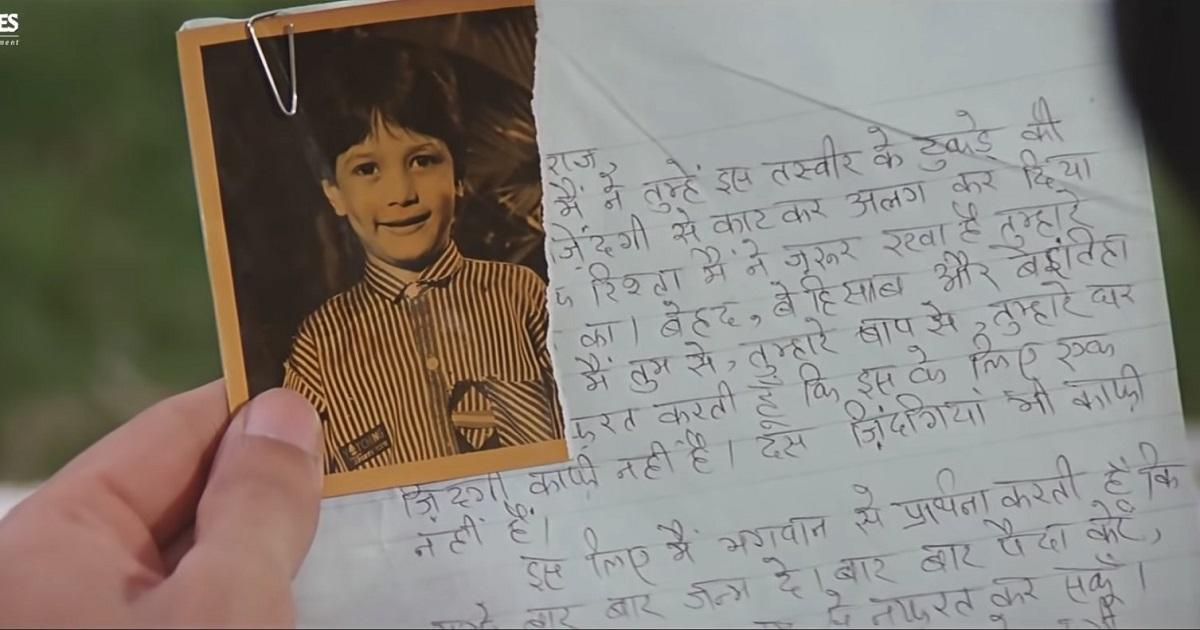 ES
ment
राज,
मैं ने तुम्हें इस तस्वीर के टुकड़े की
ज़िंदगी से काट कर अलग कर दिया
रिश्ता मैं ने जरूर रखा है तुम्हारे
का। बेहद, बेहिसाब और बेइंतिहा
मैं तुम से, तुम्हारे बाप से, तुम्हारे घर
फ़रत करती हूँ कि इस के लिए एक
ज़िंदगी काफ़ी नहीं है। दस ज़िंदगियां भी काफ़ी
नहीं हैं।
इस लिए मैं भगवान से प्रार्थना करती हूँ कि
बार बार जन्म दे। बार बार पैदा करे,
नफरत कर सकूँ।